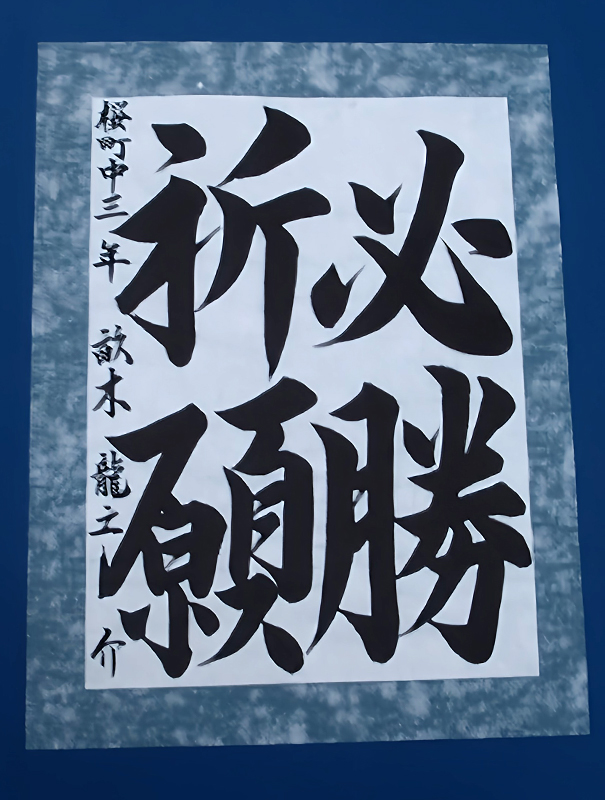 必勝
祈願
桜町中三年 畝木 龍之介